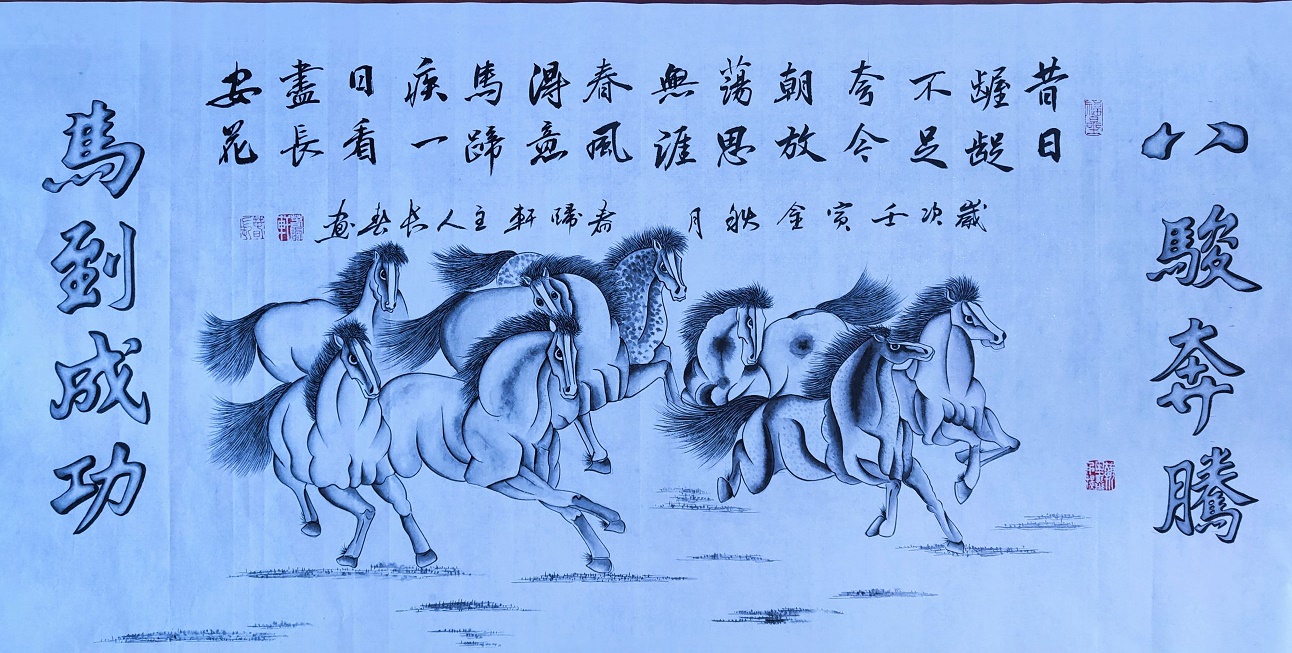 八駿奔騰
昔日
齷齪
不足
夸今
朝放
蕩思
無涯
春風
得意
馬蹄
疾一
日看
盡長
安花
歲次壬寅金秋月 春歸軒主人長春畫
馬到成功